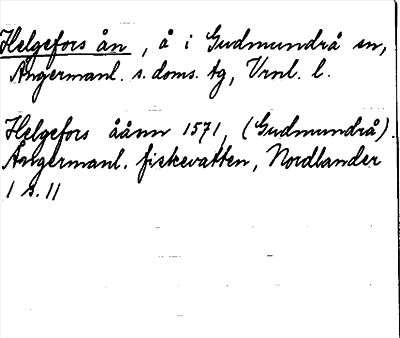 Helgefors ån, å i Gudmundrå sn,
Ångermanl. s. doms. tg, Vrnl. l.
Helgefors åånn 1571, (Gudmundrå).
Ångermanl. fiskevatten, Nordlander
1 s. 11